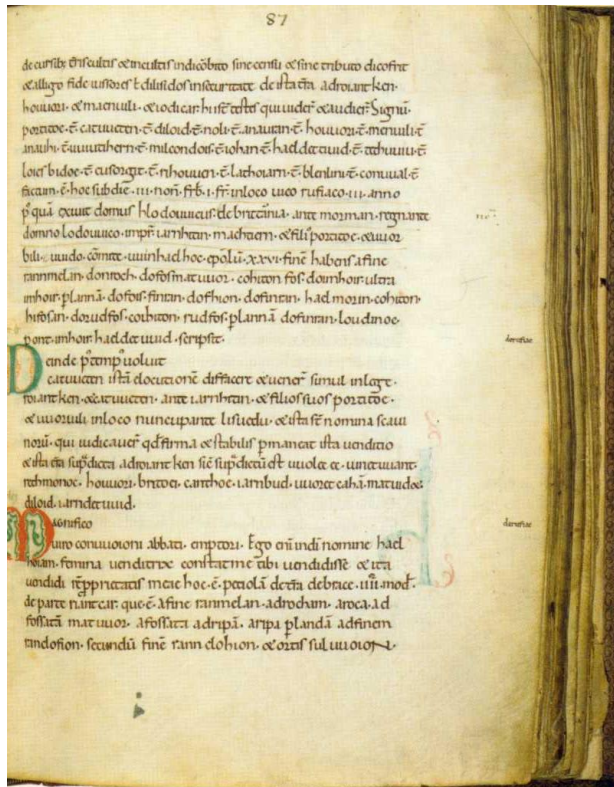 87
de cursib; t̄ris cultis & incultis indicōbito sine censu & sine tributo dicofrit
& alligo fide iussores t̄ dilisidos insecuritate de ista t̄ra adroiant ken·
houuori· & maenuili· & iodicar hi s̄t testes qui uider̄ & audier̄ Signū·
portitoe· t̄· catuueten· t̄· diloid· t̄· noli· t̄· anauran· t̄· houuori· t̄· menuili· t̄
anauhi· t̄· uuiutihern· t̄· milcondoes· t̄· iohan· t̄· hael det uuid· t̄·
loies bidoe· t̄· t̄· rihouuen· t̄· lathoiarn· t̄· bleniuu· t̄· conuual· t̄
factum· ē· hoc sub die· iii· non̄· frb̄· i· fr̄ in loco uico rufiaco· iii· anno
p̄ quā exiuit domus hlodouuicus de britānia· ante morman· regnante
domno lodouuico· impr̄ iarnhitin· machtiern· & filii portitoe· & uuor
bili· uuido· cōmite· uuinhaelhoc· ep̄o lun̄· xxvi· finē habens a fine
rannmelan· donroch· dofosmatuuor· cohiton fos· doimhoir· ultra
imhoir· p lannā· dofois· fintin· dofhion· dofintin· hael morin· cohiton·
hifosan· dorudfos· cohiton· rudfos· p lannā dofinran· loudinoe·
pont· imhoir· hael det uuid· scripsit·
Deinde p̄ temp̄ uoluit
catuueten istā elocutionē difficere & uener̄ simul inlege·
roiant ken· & catuueten· ante iarnhitin· & filios suos portitoe·
& uuoruili inloco nuncupante lisuedu· & ista s̄t nomina scaui
norū· qui iudicauer̄ qd̄ firma & stabilis pmaneat ista uenditio
& ista t̄ra supdicta adroiant ken sic̄ sup dictū est uuolet ec· uuinetuuiant·
rethmonoe· houuori· britoei· carthoe· iarnbud· uuoret cahā· matuidoe·
diloid· iarndetuuid·
Magnifico
uiro conuuoioni abbati· emptori· Ego en̄ indī nomine hael
hoiam· femina uenditrix constat me tibi uendidisse & ita
uendidi rē pprietatis meae hoc ē· petiolā de t̄ra de brace· iiii· mod̄·
de parte rantcar· que ē· a fine ranmelan· adrocham· aroca· ad
fossatā matuuor· a fossata adripā· aripa plandā adfinem
randofion· secundū finē rann dohion· & ortis sul uuoion·
derufiac
derufiac